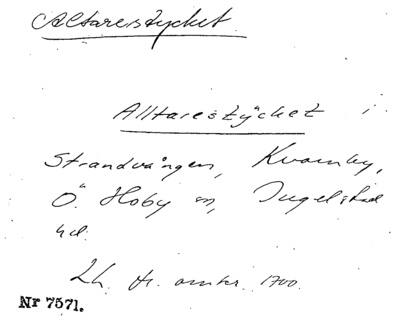 Altarestycket
Alltarestÿcket i
Strandvången, Kvarnby,
Ö. Hoby sn, Ingelstad
hd.
Lh. fr. omkr. 1700.
Nr 7571.